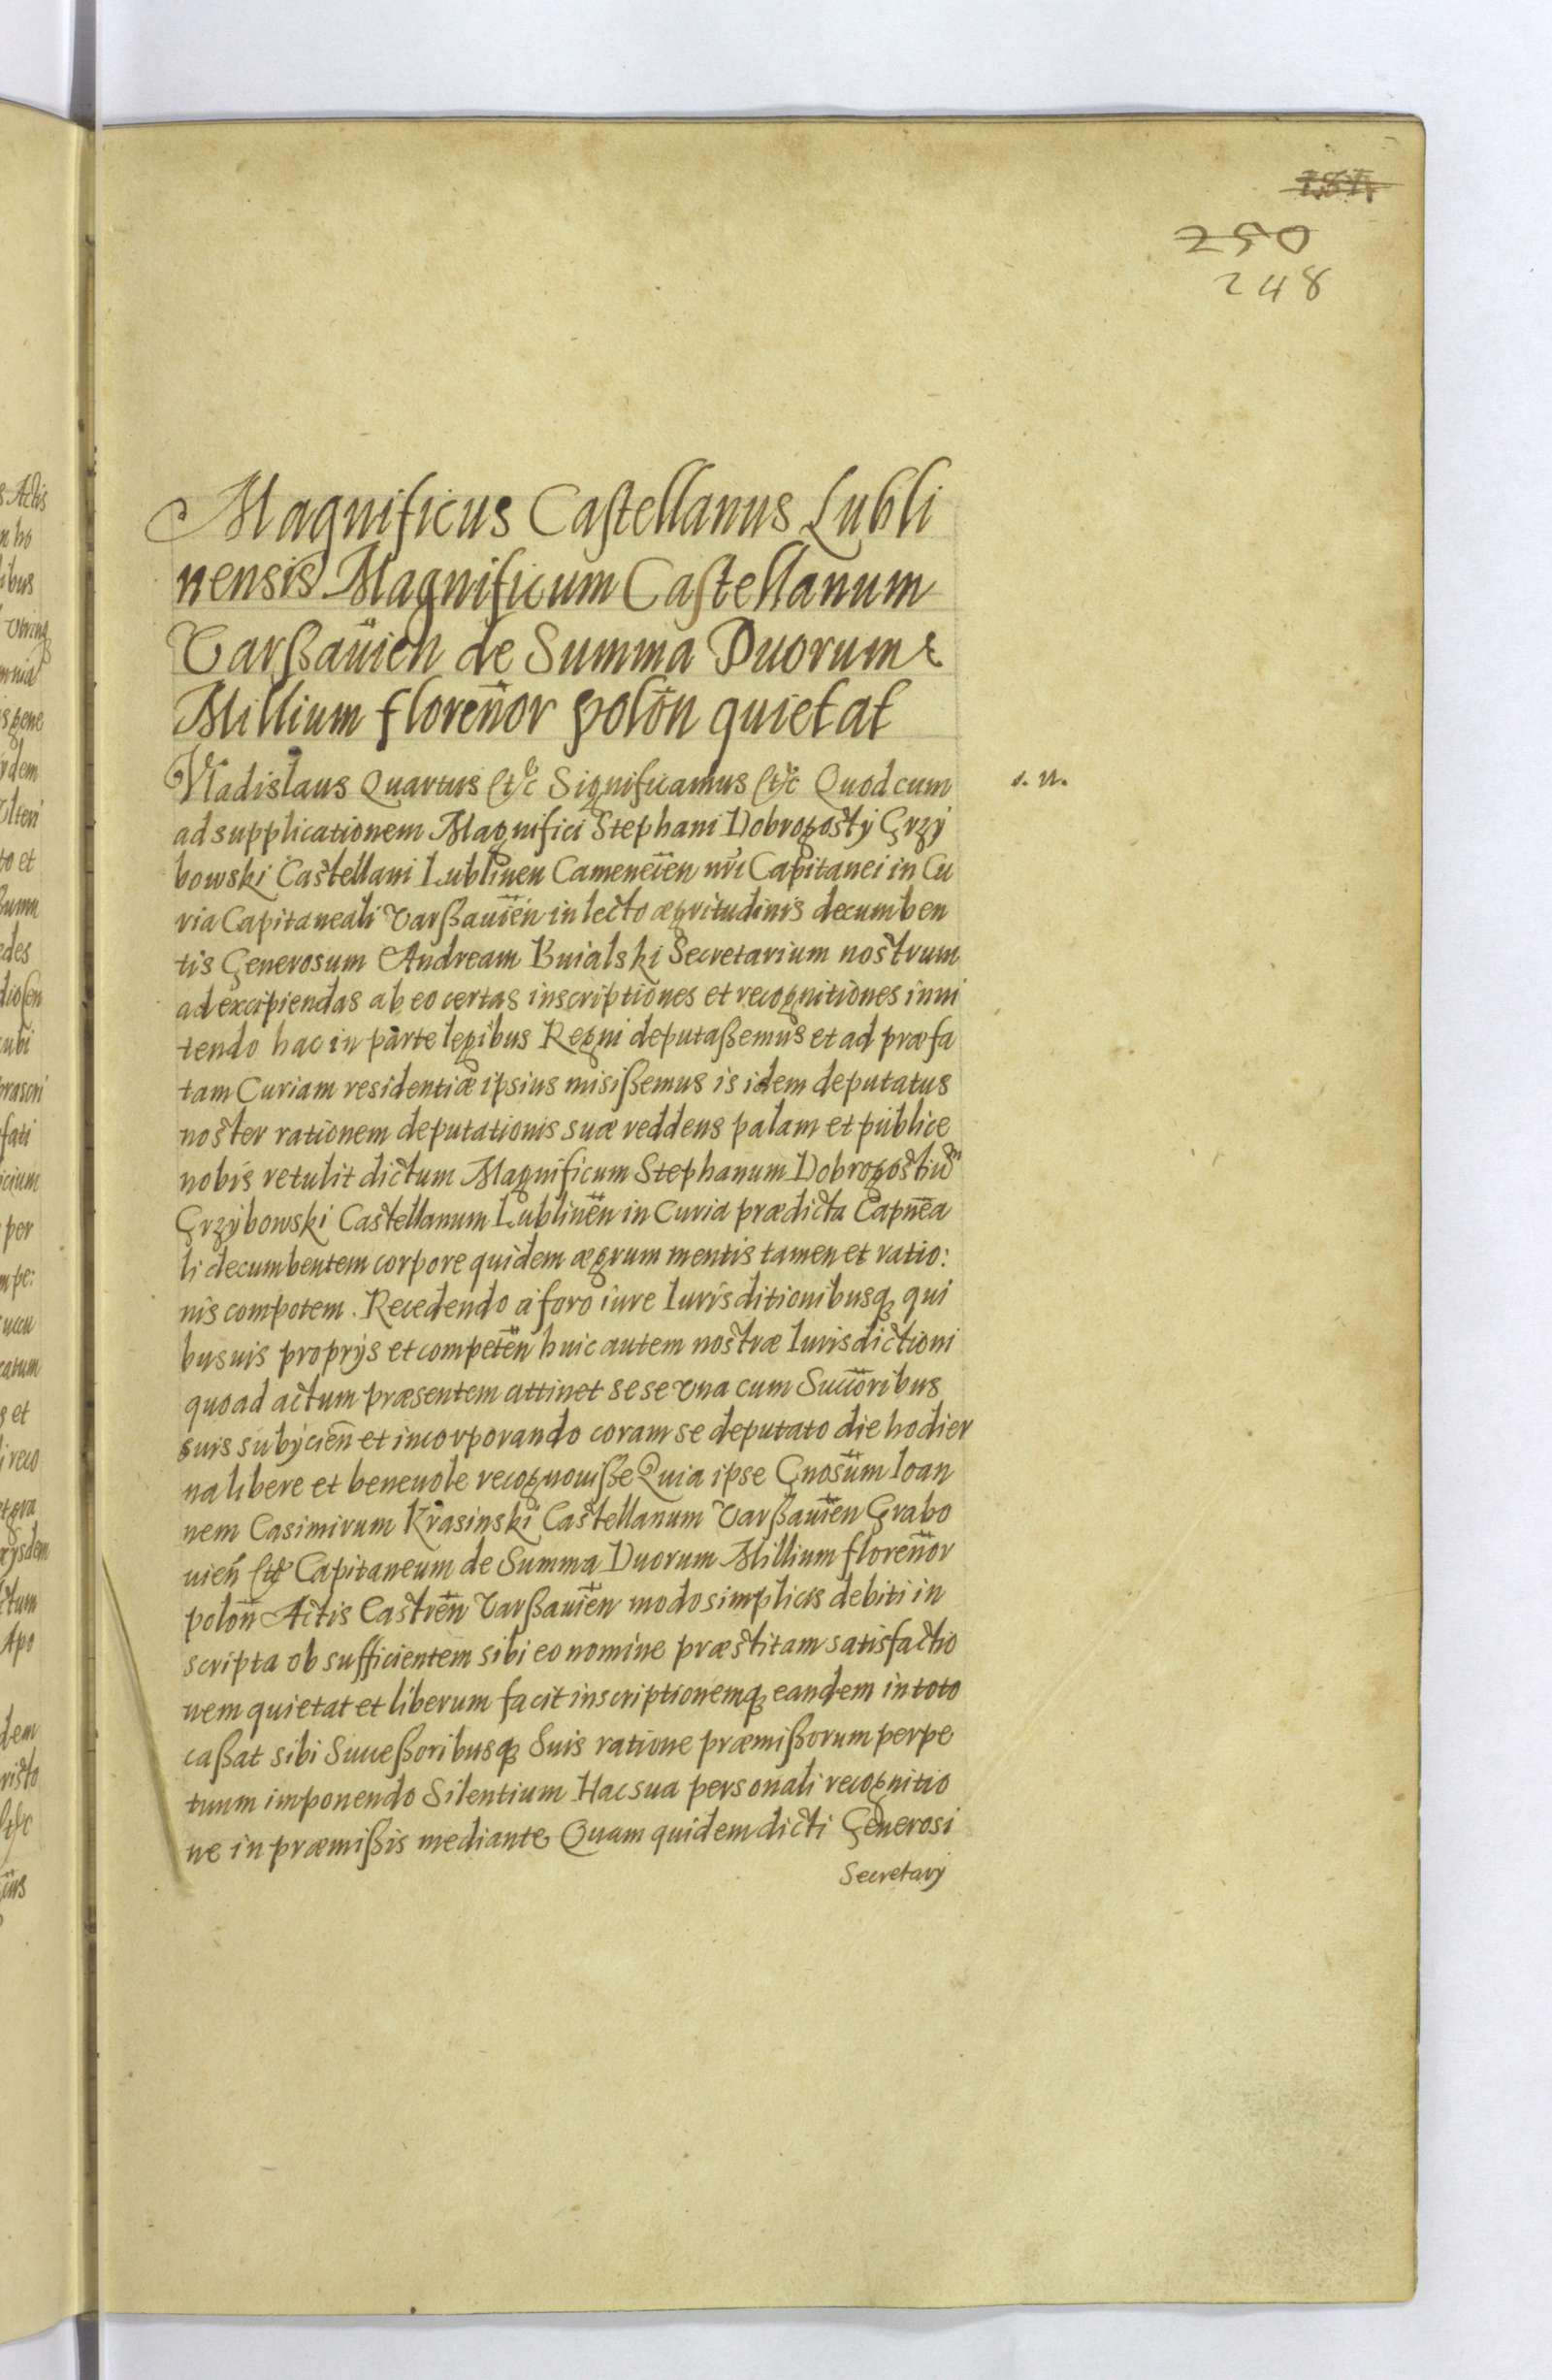 250
248
Magnificus Castellanus Lubli
nensis Magnificum Castellanum
Varßauien de Summa Duorum
Millium florenor polon quietat
Vladislaus Quartus Etc Significamus Etc Quod cum
s. n.
ad supplicationem Magnifici Stephani Dobrogostÿ Grzÿ
bowski Castellani Lublinen Cameneien nri Capitanei in Cu
ria Capitaneali Varßauien in lecto ægritudinis decumben
tis Generosum Andream Buialski Secretarium nostrum
ad excipiendas ab eo certas inscriptiones et recognitiones inni
tendo hac in parte legibus Regni deputaßemus et ad præfa
tam Curiam residentiæ ipsius misißemus is idem deputatus
noster rationem deputationis suæ reddens palam et publice
nobis retulit dictum Magnificum Stephanum Dobrogostiũm
Grzÿbowski Castellanum Lublinen in Curia prædicta Capnea
li decumbentem corpore quidem ægrum mentis tamen et ratio:
nis compotem. Recedendo a foro iure Iurisditionibusq qui
busuis proprÿs et competen huic autem nostræ Iurisdictioni
quoad actum præsentem attinet sese vna cum Succoribus
suis subÿcien et incorporando coram se deputato die hodier
na libere et beneuole recognouiße Quia ipse Gnosum Ioan
nem Casimirum Krasinski Castellanum Varßauien Grabo
uien Etc Capitaneum de Summa Duorum Millium florenor
polon Actis Castren Varßauien modo simplicis debiti in
scripta ob sufficientem sibi eo nomine præstitam satisfactio
nem quietat et liberum facit inscriptionemq eandem in toto
caßat sibi Succeßoribusq Suis ratione præmißorum perpe
tuum imponendo Silentium Hac sua personali recognitio
ne in præmißis mediante Quam quidem dicti Generosi
Secretarÿ